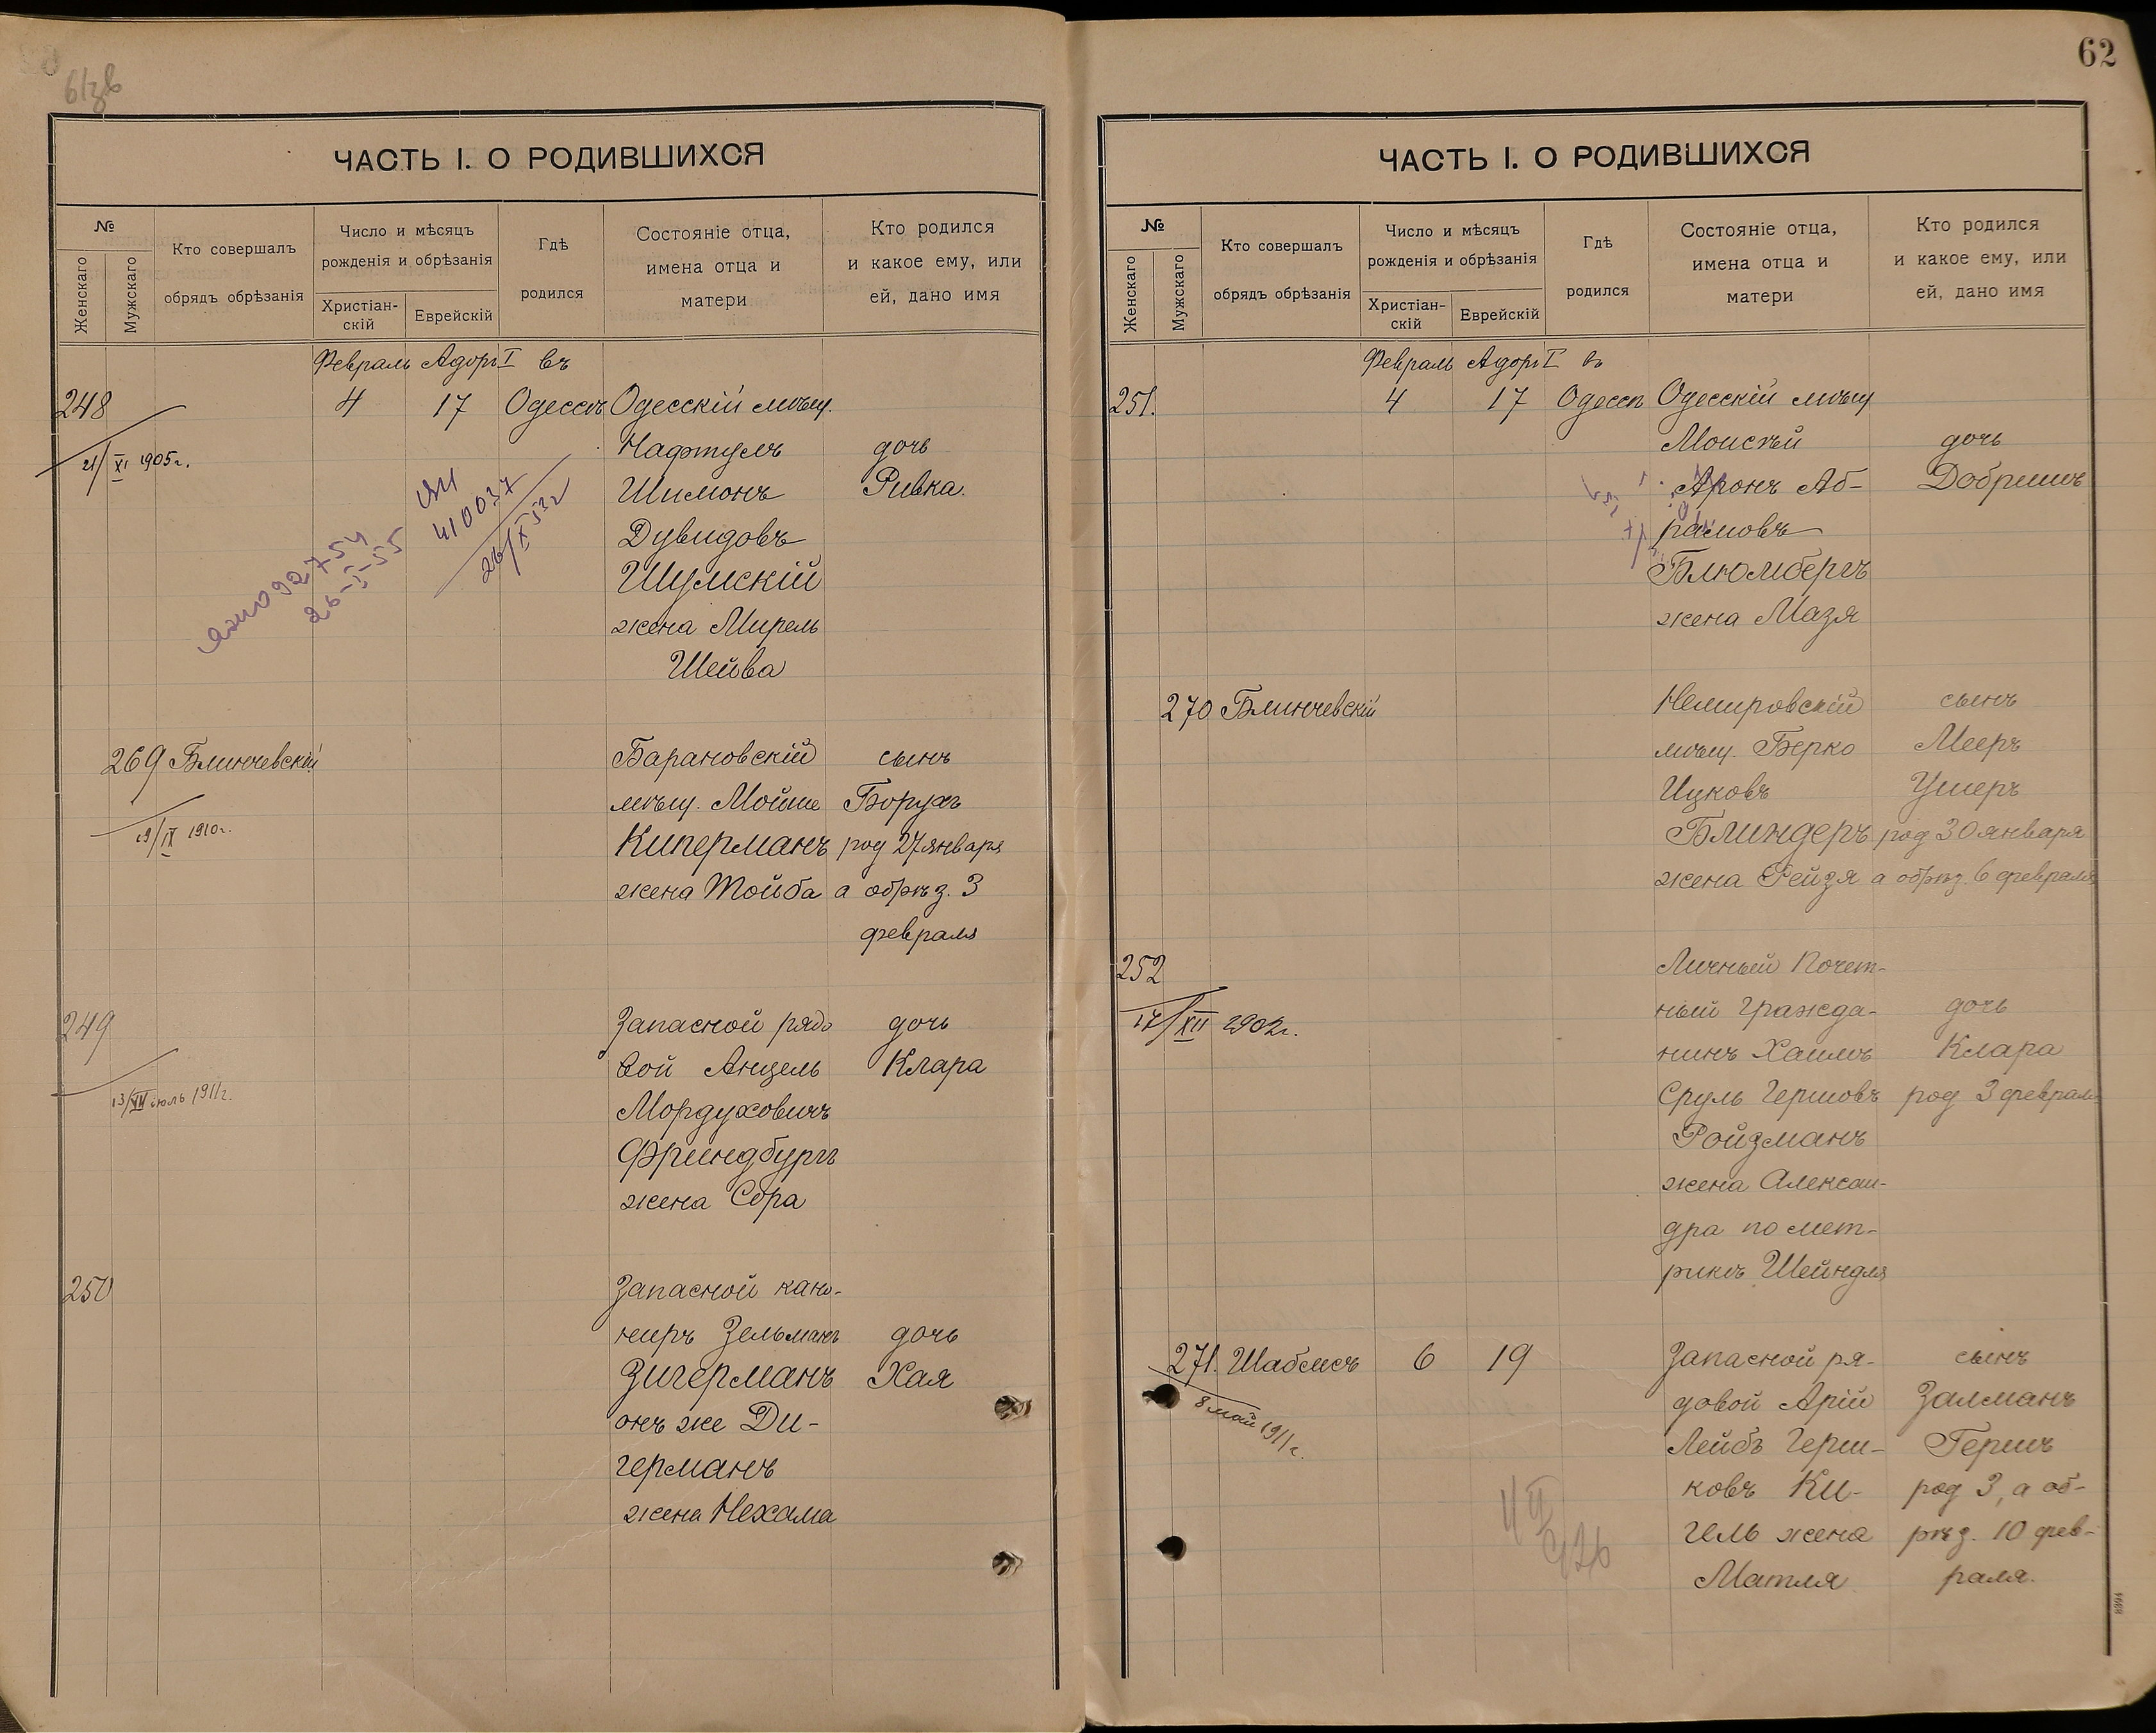 61зв
ЧАСТЬ I. О РОДИВШИХСЯ
№
Женскаго
Мужскаго
Кто совершалъ
обрядъ обрѣзанія
Число и мѣсяцъ
рожденія и обрѣзанія
Христіан-
скій
Еврейскій
Гдѣ
родился
Состояніе отца,
имена отца и
матери
Кто родился
и какое ему, или
ей, дано имя
Февраль Адоръ I въ
248 4 17 Одессѣ Одесскій мѣщ.
21/XI 1905г.
Нафтулъ дочь
Шимонъ Ривка.
Дувидовъ
Шумскій
жена Мирель
Шейва
410037
26/X 53г
092754
26-5-55
269 Блинчевскій Барановскій сынъ
мѣщ. Мойше Борухъ
19/IX 1910г.
Киперманъ род 27 января
жена Тойба а обрѣз. 3
февраля
249 Запасной рядо дочь
вой Анцель Клара
13/VII июль 1911г.
Мордуховичъ
Фриндбургъ
жена Сора
250 Запасной кано-
ниръ Зельманъ дочь
Зигерманъ Хая
онъ же Ди-
германъ
жена Нехама
62
ЧАСТЬ I. О РОДИВШИХСЯ
№
Женскаго
Мужскаго
Кто совершалъ
обрядъ обрѣзанія
Число и мѣсяцъ
рожденія и обрѣзанія
Христіан-
скій
Еврейскій
Гдѣ
родился
Состояніе отца,
имена отца и
матери
Кто родился
и какое ему, или
ей, дано имя
Февраль Адоръ I въ
251. 4 17 Одессѣ Одесскій мѣщ
Моисѣй дочь
Аронъ Аб- Добришъ
рамовъ
Блюмбергъ
жена Мазя
270 Блинчевскій Немировскій сынъ
мѣщ. Берко Мееръ
Ицковъ Ушеръ
Блиндеръ род 30 января
жена Рейзя а обрѣз. 6 февраля
252 Личный Почет-
ный Гражда- дочь
17/XII 1902г.
нинъ Хаимъ Клара
Сруль Гершовъ род 3 феврал
Ройзманъ
жена Алексан-
дра по мет-
рикѣ Шейндля
271. Шабсисъ 6 19 Запасной ря- сынъ
довой Арій Залманъ
8 май 1911г.
Лейбъ Герш- Гершъ
ковъ Ки- род 3, а об-
гель жена рѣз. 10 фев-
Матля раля.